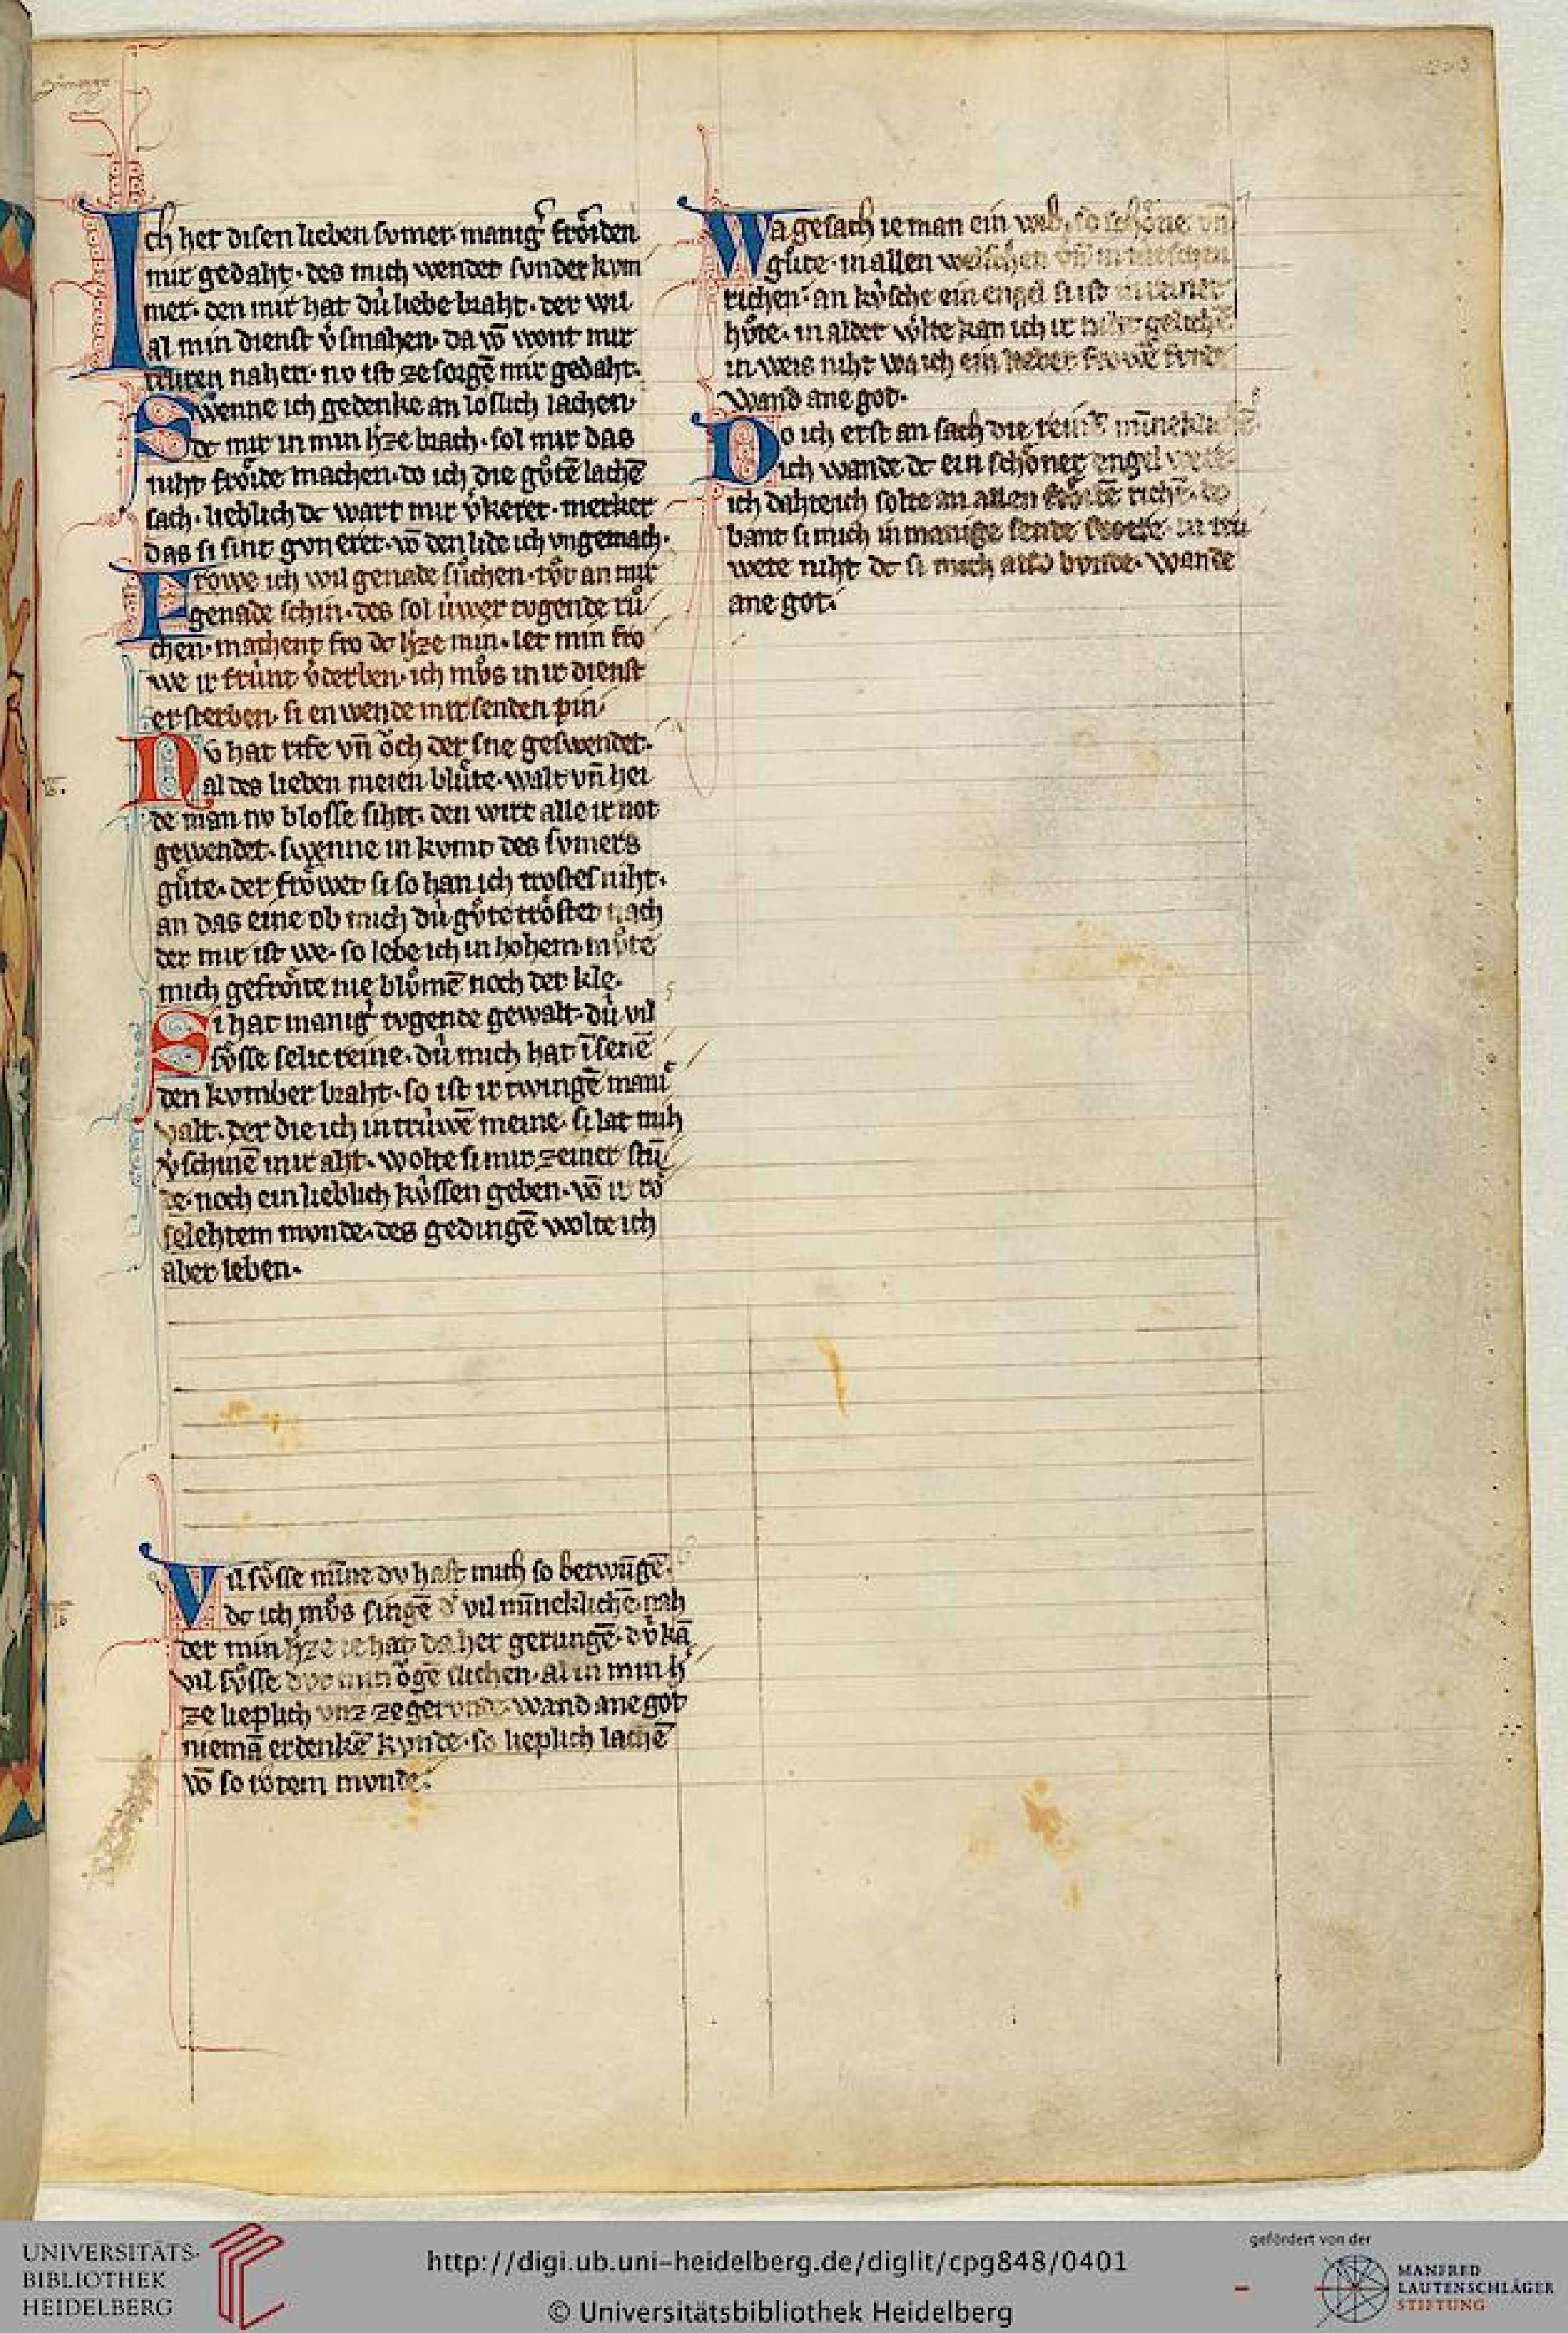 Ich het disen lieben sumer· manigˀ frȯ́iden
mir gedaht· des mich wendet sunder kvm
mer· den mir hat dú liebe braht· der wil
al min dienst v̾smahen· da vō wont mir
truren nahen· nv ist ze sorgē mir gedaht·
Swenne ich gedenke an loslich lachen·
dc mir in min h̾ze brach· sol mir das
niht frȯ́ide machen· do ich die gůtē lachē
sach· lieblich dc wart mir v̾keret· merker
das si sint gvneret· vō den lide ich vngemach·
Frowe ich wil genade sůchen· tůt an mir
genade schin· des sol úwer tvgende rů
chen· machent fro dc h̾ze min· let min fro
we ir frúnt v̾derben· ich můs in ir dienst
ersterben· si en wende mir senden pin·
Nv hat rife vn̄ ȯch der sne geswendet·
al des lieben meien blůte· walt vn̄ hei
de man nv blosse siht· den wirt alle ir not
gewendet· swenne in kvmt des svmers
gůte· der frȯwet si so han ich trostes niht·
an das eine ob mich dú gůte trȯstet nach
der mir ist we· so lebe ich in hohem můte
mich gefrȯite nie blůmē noch der kle·
Si hat manigˀ tvgende gewalt· dú vil
sůsse selic reine· dú mich hat ī senē
den kvmber braht· so ist ir twingē mani
valt· der die ich in trúwē meine· si lat mih
v̾schinē in ir aht· wolte si mir zeiner stū
de· noch ein lieblich kússen geben· vō ir ro
selehtem mvnde· des gedingē wolte ich
aber leben·
Vil sůsse mīne dv hast mich so betwūgē·
dc ich můs singē dˀ vil mīneklichē· nah
der min h̾ze ie hat da her gerungē· dv́ kā
vil sůsse dvr min ȯgē slichen· al in min h̾
ze lieplich vnz ze gervnde· wand ane got
niemā erdenkē kvnde· so lieplich lachē
vō so rotem mvnde·
Wa gesach ieman ein wib· so schȯne vn̄
gůte· in allen welschen vn̄ in tútschen
richen· an kúsche ein engel si ist in
hůte· in alder wlte kan ich ir niht gelichē·
in weis niht wa ich ein lieber frowē fvnde
wand ane got·
Do ich erst an sach die reinē mīneklichē·
ich wande dc ein schȯner engel were·
ich dahte ich solte an allen frȯidē richē· do
bant si mich in manige sende swere· in trů
wete niht dc si mich also bvnde· wande
ane got·
http://digi.ub.uni-heidelberg.de/diglit/cpg848/0401
© Universitätsbibliothek Heidelberg
UNIVERSITÄTS-
BIBLIOTHEK
HEIDELBERG
gefördert von der
MANFRED
LAUTENSCHLÄGER
STIFTUNG